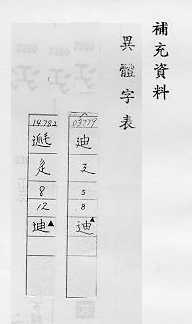 補充資料
異體字表
03779
迪
5
8
迪▲
14782
8
12
迪▲